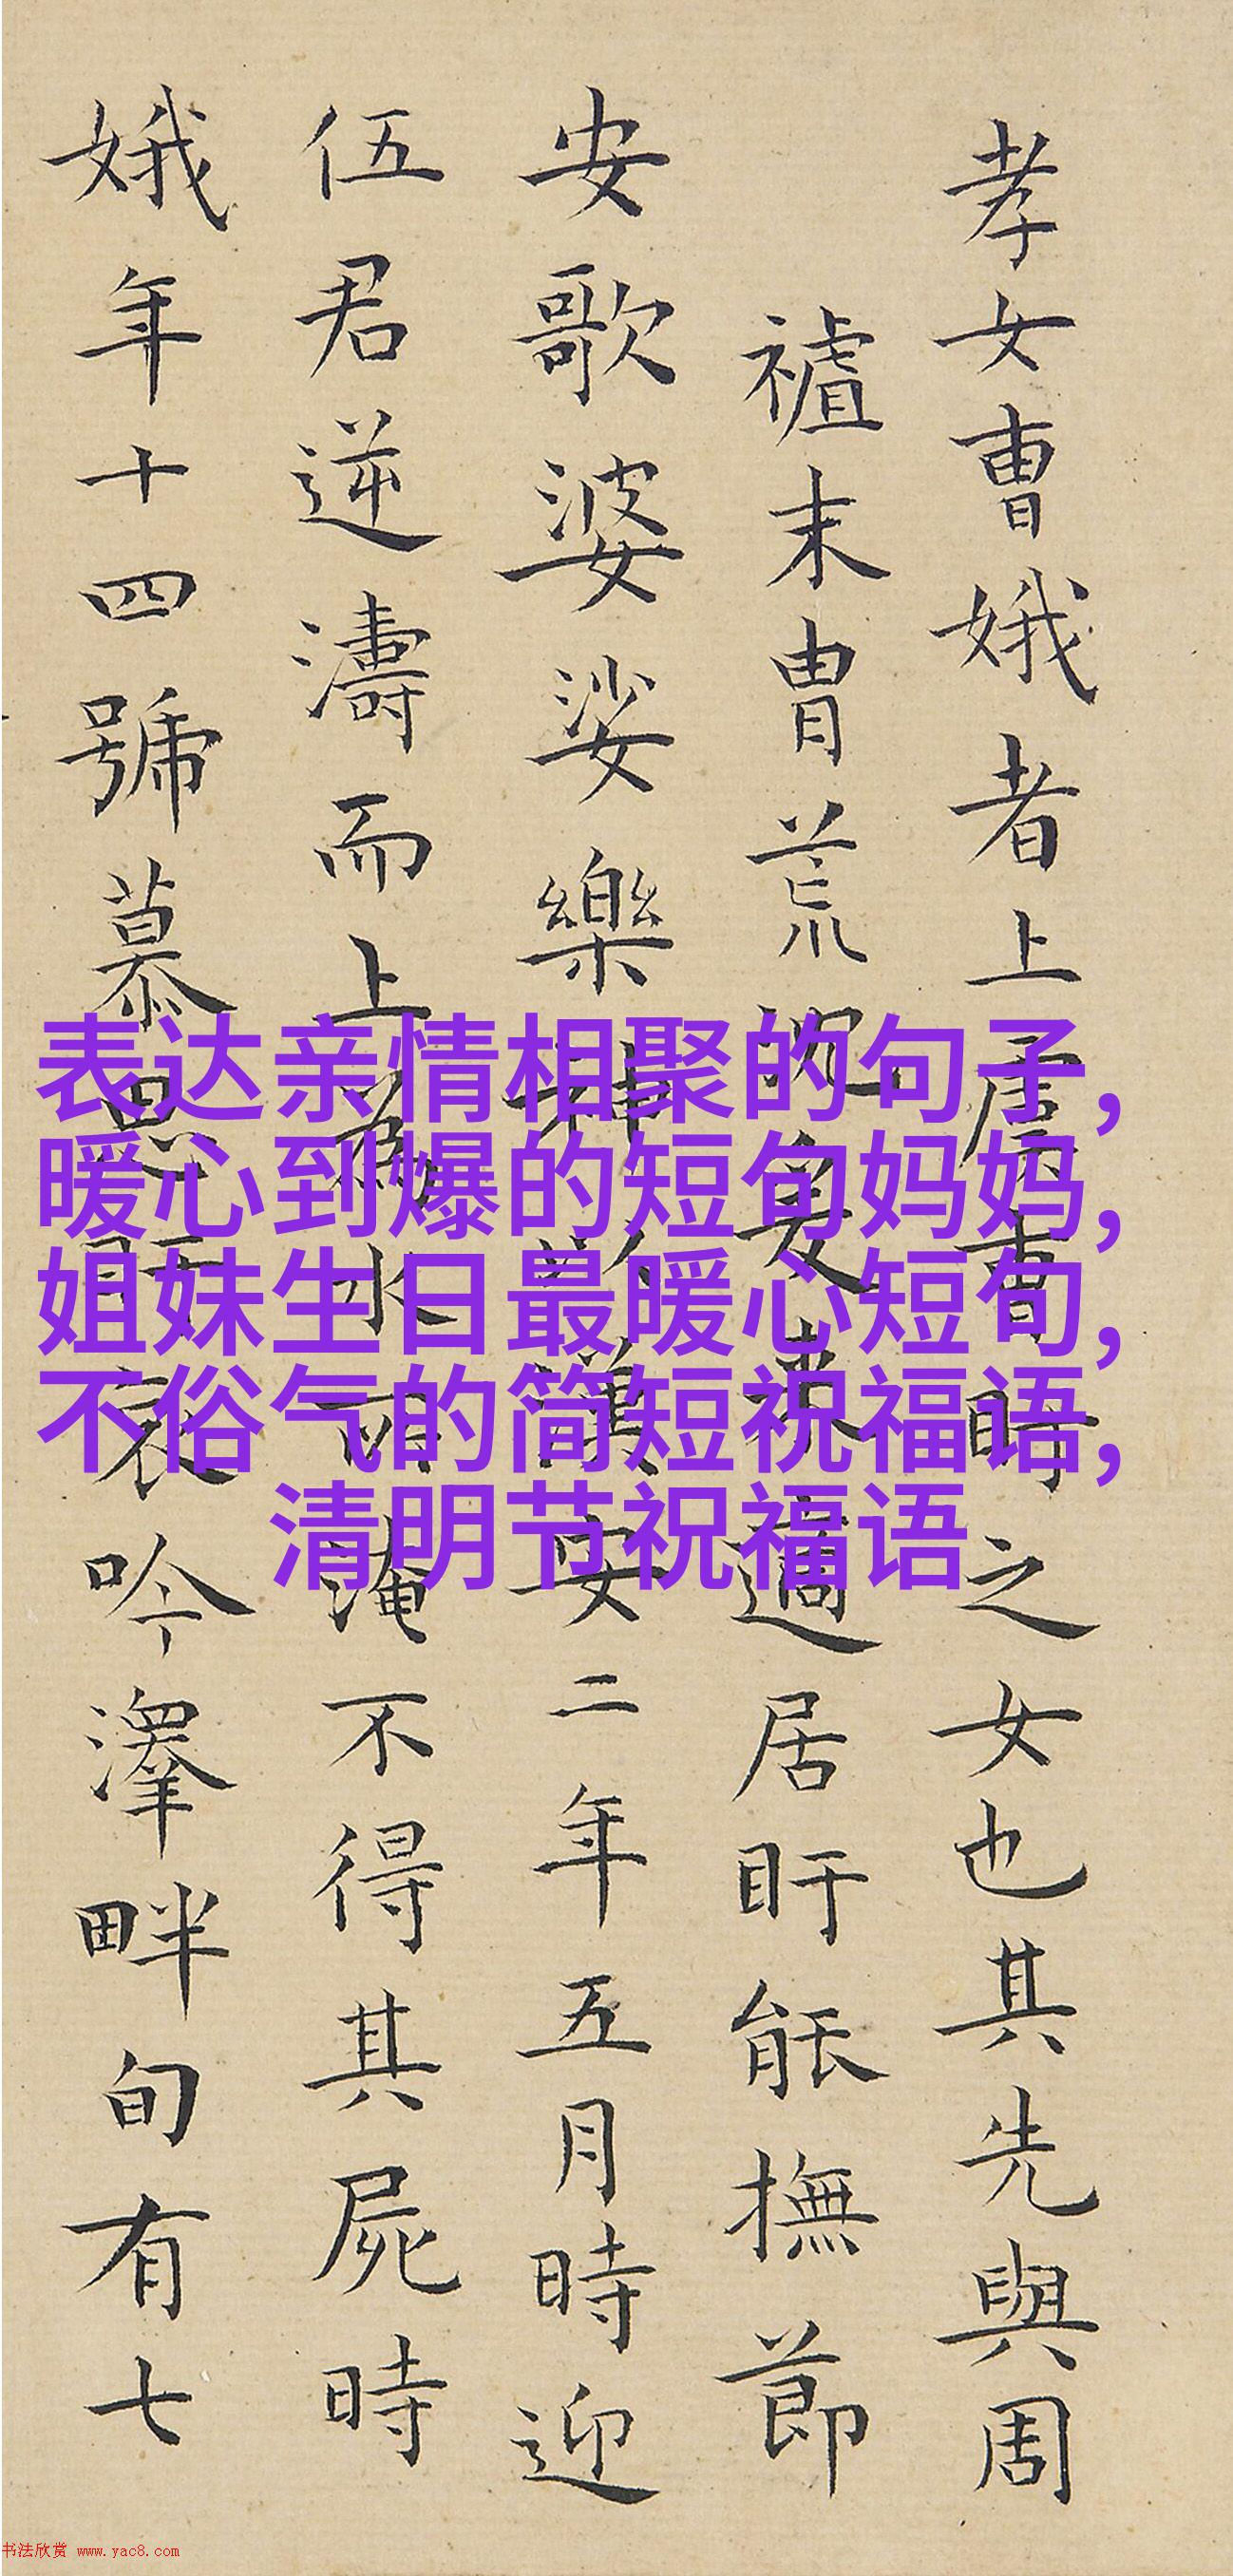 孝女曹娥者上虞曹盱之女也其先與周
末胄荒沉爰来適居盱能撫節
安歌婆娑樂神以漢安二年五月時迎
伍君逆濤而上為水所淹不得其屍時
娥年十四號慕思盱哀吟澤畔旬有七
表达亲情相聚的句子,
暖心到爆的短句妈妈,
姐妹生日最暖心短句,
不俗气的简短祝福语,
清明节祝福语
书法欣赏 www.yac8.com